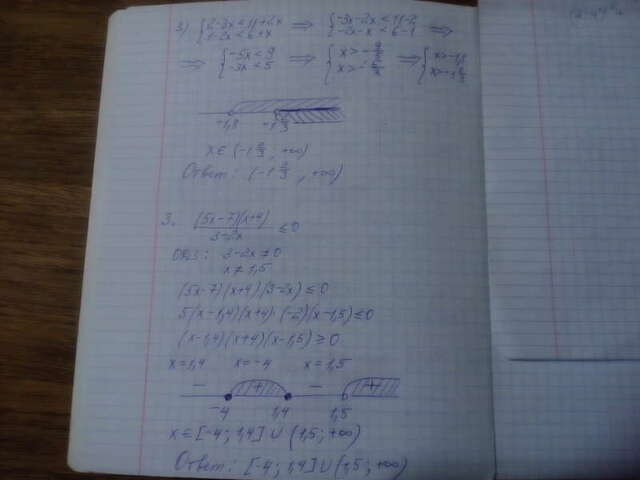 3) { 2-3x < 11+2x 1-2x < 6+x ⟹ { -3x-2x < 11-2 -2x-x < 6-1 ⟹
⟹ { -5x < 9 -3x < 5 ⟹ { x > -9/5 x > -5/3 ⟹ { x > -1,8 x > -1 2/3
-1,8 -1 2/3
x ∈ (-1 2/3 ; +∞)
Ответ: (-1 2/3 ; +∞)
3. (5x-7)(x+4)/(3-2x) ≤ 0
ОДЗ: 3-2x ≠ 0
x ≠ 1,5
(5x-7)(x+4)(3-2x) ≤ 0
5(x-1,4)(x+4)·(-2)(x-1,5) ≤ 0
(x-1,4)(x+4)(x-1,5) ≥ 0
x=1,4 x=-4 x=1,5
- + - +
-4 1,4 1,5
x ∈ [-4; 1,4] ∪ (1,5; +∞)
Ответ: [-4; 1,4] ∪ (1,5; +∞)